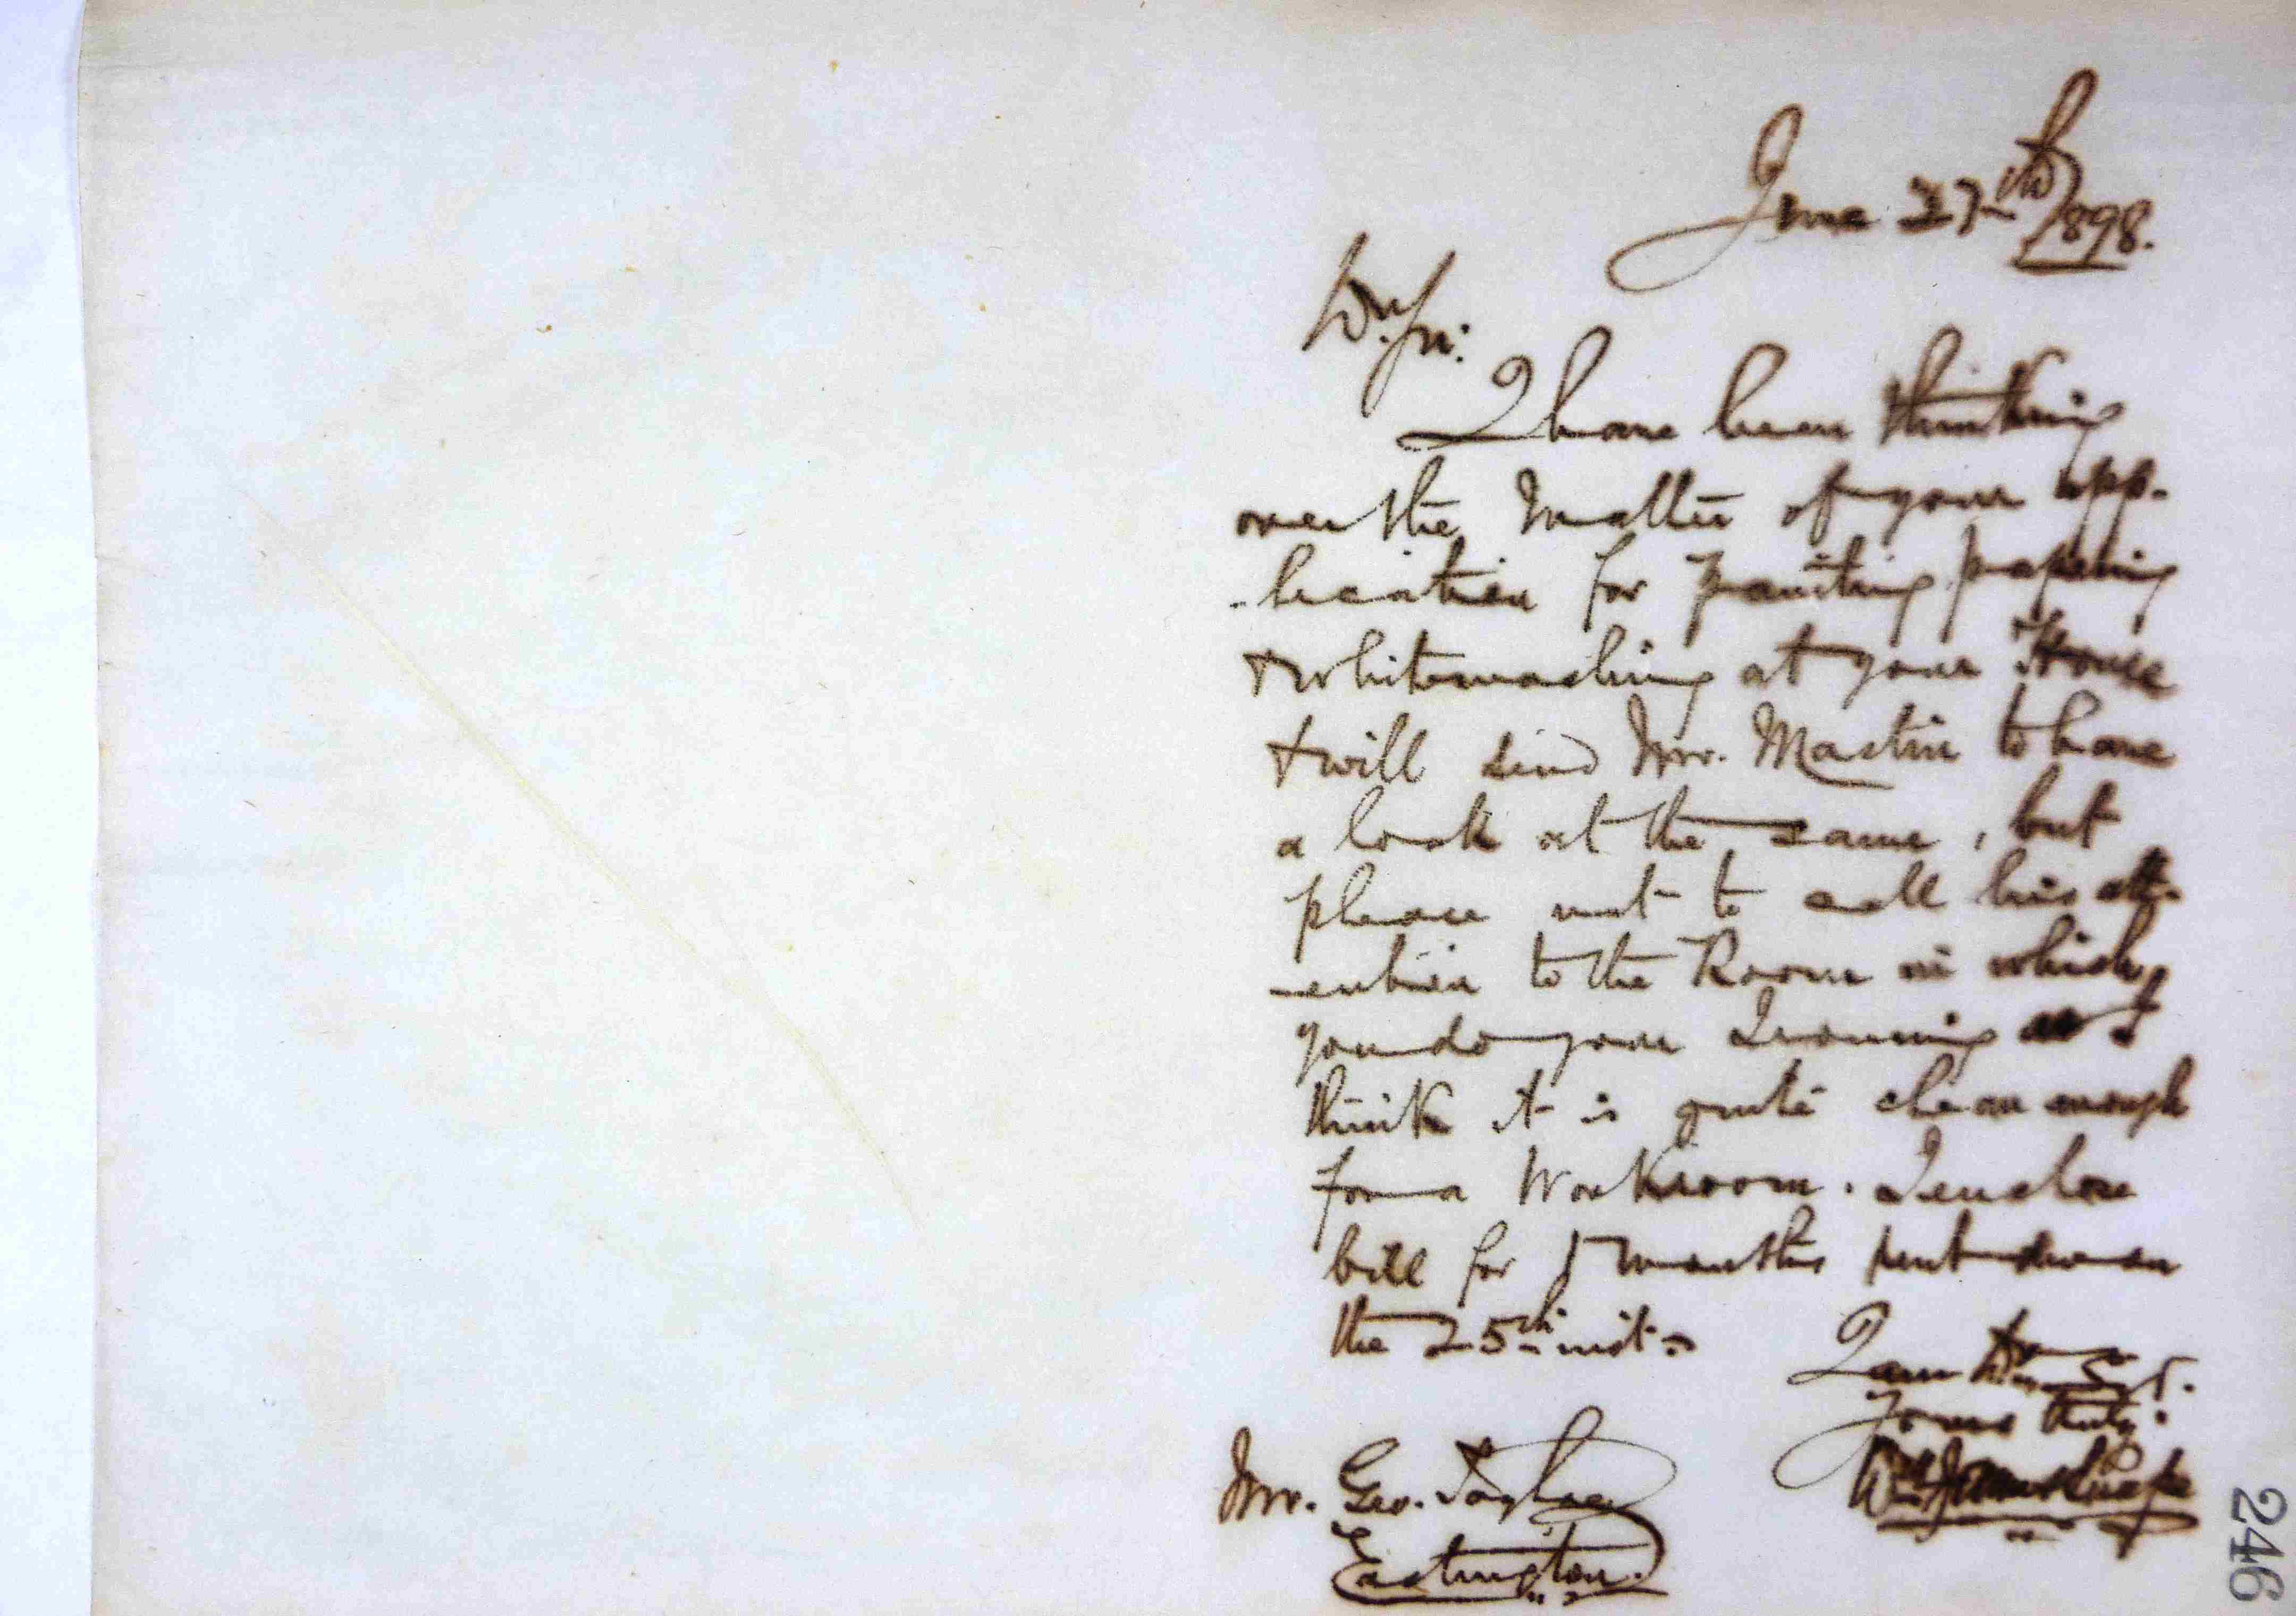 June 27th 1898.
Dr. Sir:
I have been thinking
over the Matter of your app-
-lication for Painting papering
& Whitewashing at your House
& will send Mr. Mastin to have
a look at the same, but
please not to call his att-
-ention to the Room in which
you do your Ironing as I
think it is quite clean enough
for a Workroom. I enclose
bill for 5 months rent due on
the 25th inst:
I am Dr. Sir.
Yours truly:
Wm
Mr. Geo. Taylor
Eastington.
246